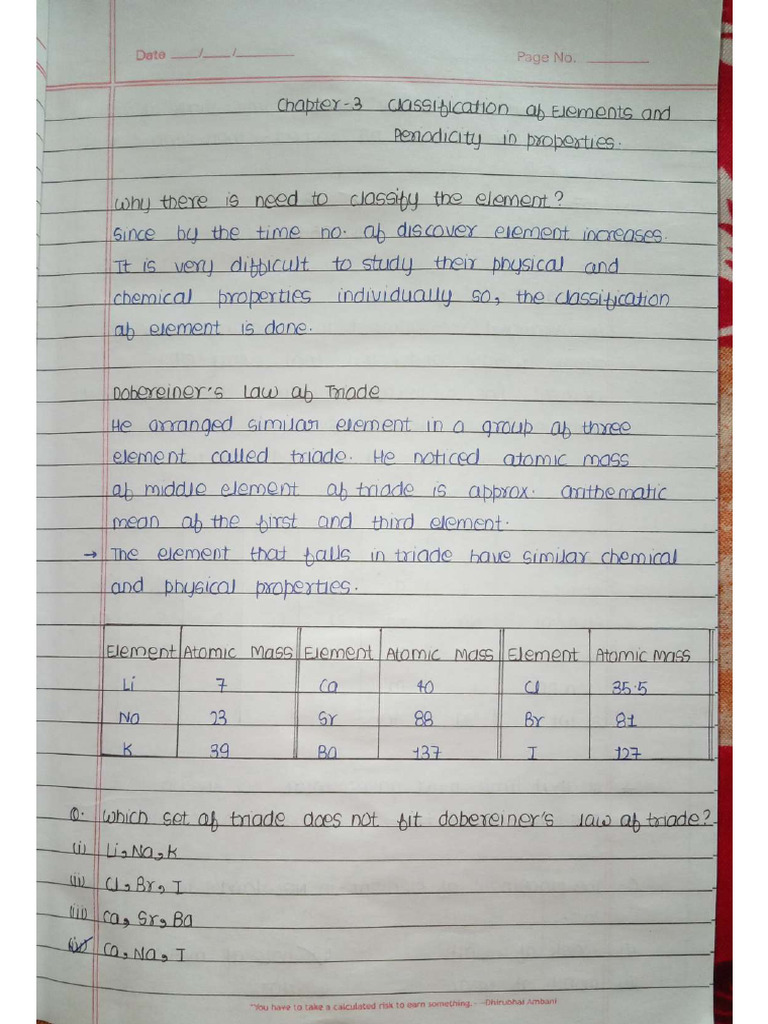 Date ___/___/______ Page No. ______
Chapter-3 Classification of Elements and
Periodicity in properties.
Why there is need to classify the element?
Since by the time no. of discover element increases.
It is very difficult to study their physical and
chemical properties individually so, the classification
of element is done.
Dobereiner's Law of Triade
He arranged similar element in a group of three
element called triade. He noticed atomic mass
of middle element of triade is approx. arithematic
mean of the first and third element.
→ The element that falls in triade have similar chemical
and physical properties.
Element Atomic Mass Element Atomic Mass Element Atomic Mass
Li 7 Ca 40 Cl 35.5
Na 23 Sr 88 Br 81
K 39 Ba 137 I 127
Q. Which set of triade does not fit dobereiner's law of triade?
(i) Li, Na, K
(ii) Cl, Br, I
(iii) Ca, Sr, Ba
(iv) Ca, Na, I
"You have to take a calculated risk to earn something." -Dhirubhai Ambani